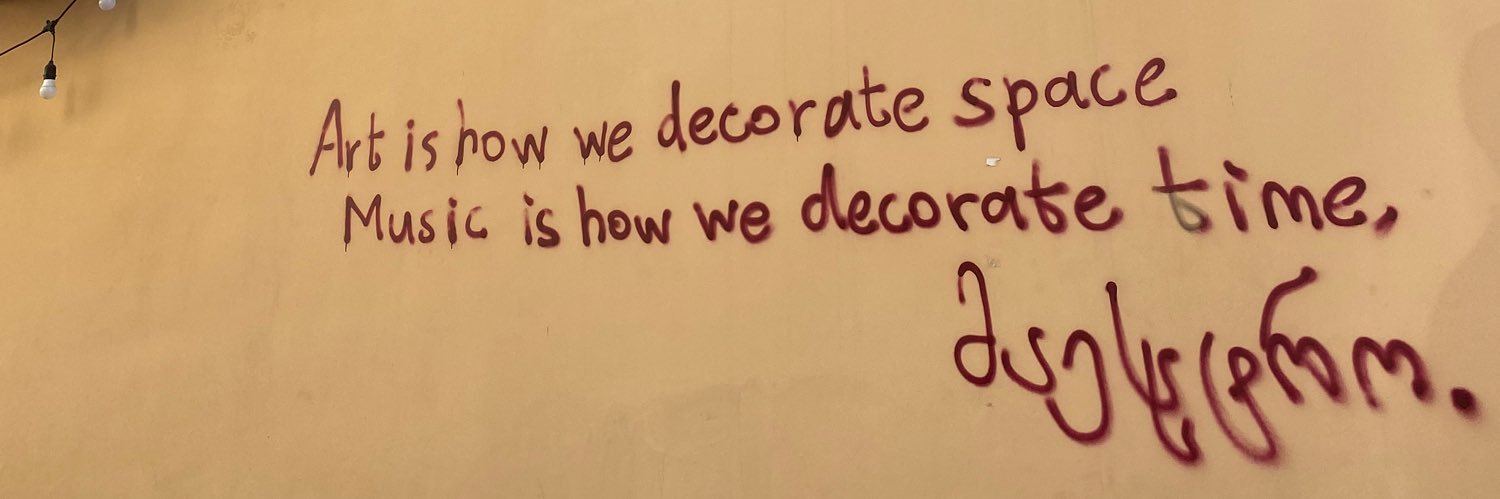 Art is how we decorate space
Music is how we decorate time,